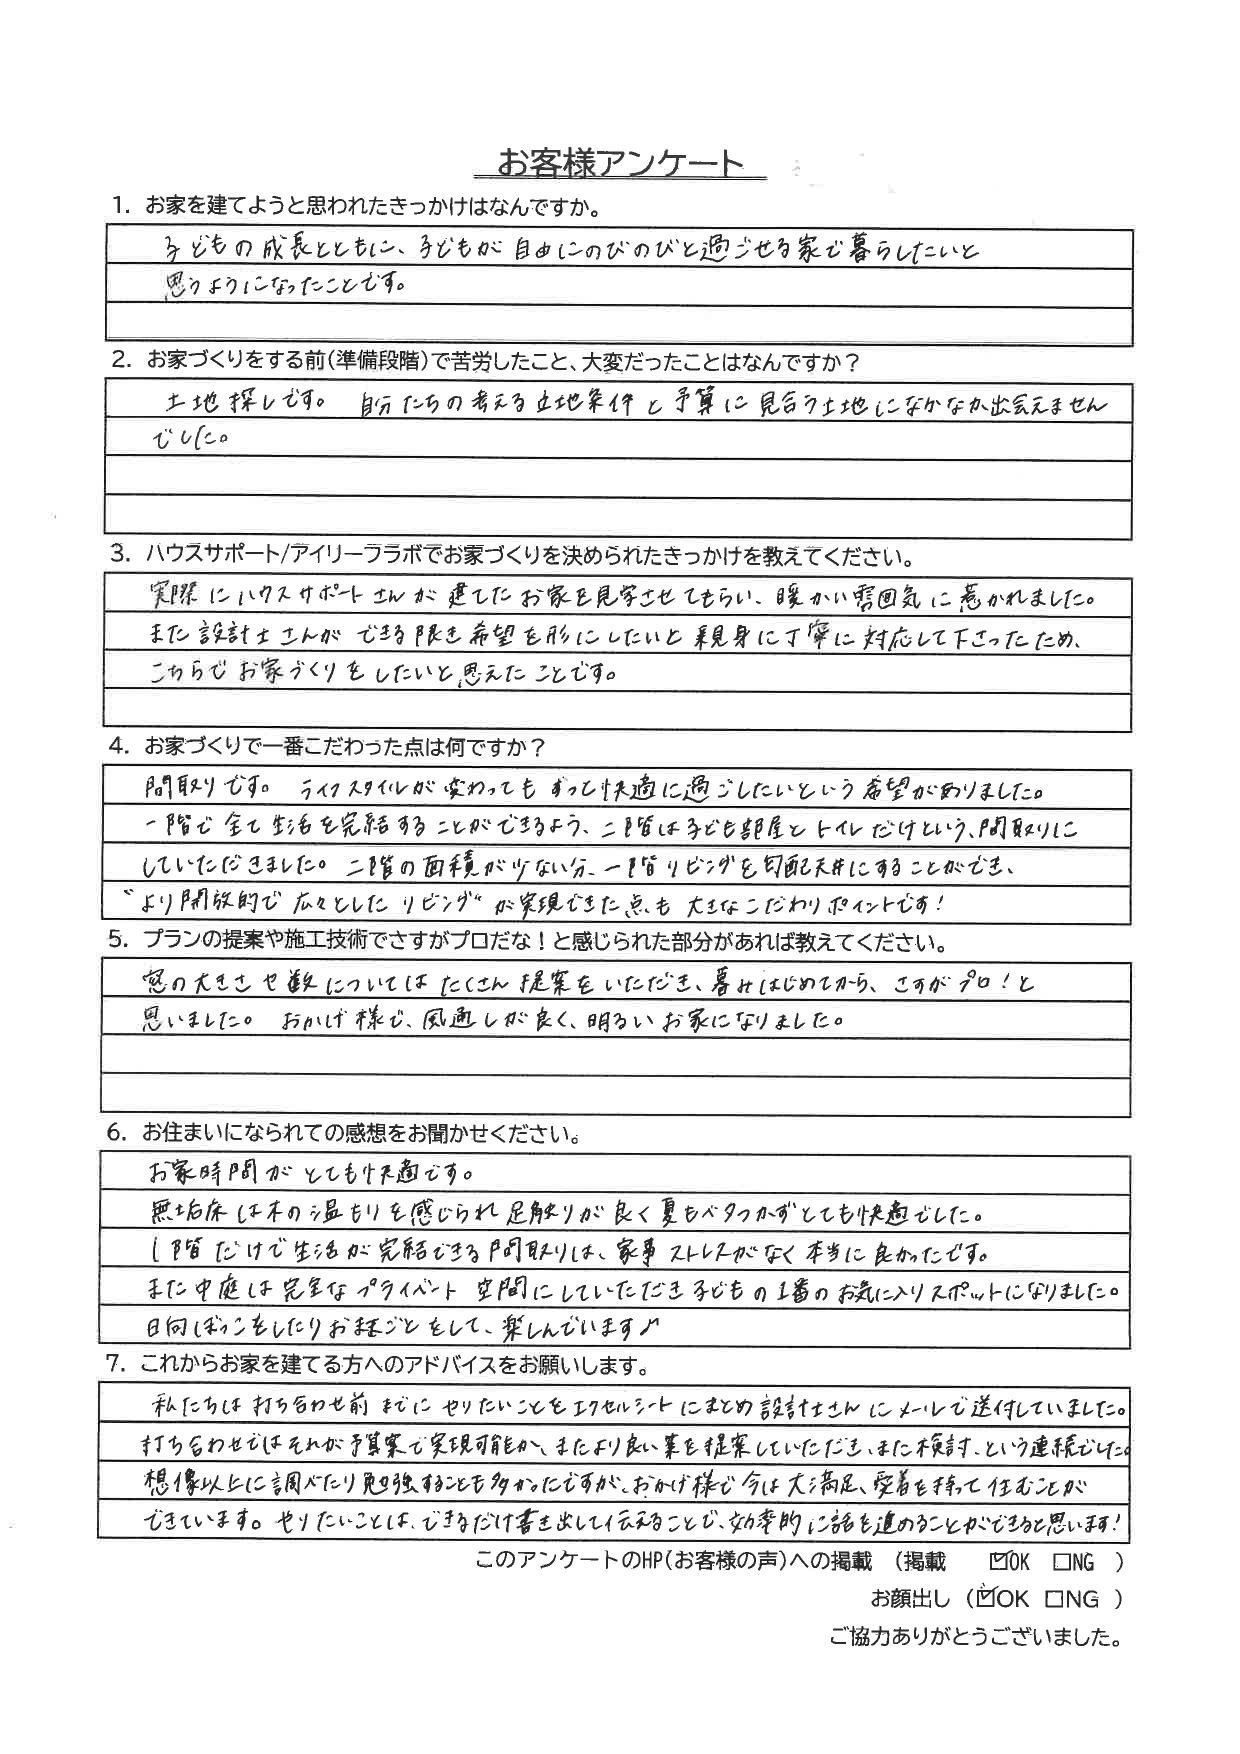 お客様アンケート
1. お家を建てようと思われたきっかけはなんですか。
子どもの成長とともに、子どもが自由にのびのびと過ごせる家で暮らしたいと
思うようになったことです。
2. お家づくりをする前(準備段階)で苦労したこと、大変だったことはなんですか？
土地探しです。 自分たちの考える立地条件と予算に見合う土地になかなか出会えません
でした。
3. ハウスサポート/アイリーフラボでお家づくりを決められたきっかけを教えてください。
実際にハウスサポートさんが建てたお家を見学させてもらい、暖かい雰囲気に惹かれました。
また設計士さんができる限き希望を形にしたいと親身に丁寧に対応して下さったため、
こちらでお家づくりをしたいと思えたことです。
4. お家づくりで一番こだわった点は何ですか？
間取りです。 ライフスタイルが変わってもずっと快適に過ごしたいという希望がありました。
一階で全て生活を完結することができるよう、二階は子ども部屋とトイレだけという、間取りに
していただきました。二階の面積が少ない分、一階リビングを勾配天井にすることができ、
"より開放的で広々としたリビング"が実現できた点も大きなこだわりポイントです！
5. プランの提案や施工技術でさすがプロだな！と感じられた部分があれば教えてください。
窓の大きさや数についてはたくさん提案をいただき、暮みはじめてから、さすがプロ！と
思いました。 おかげ様で、風通しが良く、明るいお家になりました。
6. お住まいになられての感想をお聞かせください。
お家時間がとても快適です。
無垢床は木の温もりを感じられ足触りが良く夏もベタつかずとても快適でした。
1階だけで生活が完結できる間取りは、家事ストレスがなく本当に良かったです。
また中庭は完全なプライベート空間にしていただき子どもの1番のお気に入りスポットになりました。
日向ぼっこをしたりおままごとをして、楽しんでいます♪
7. これからお家を建てる方へのアドバイスをお願いします。
私たちは打ち合わせ前までにやりたいことをエクセルシートにまとめ設計士さんにメールで送付していました。
打ち合わせではそれが予算案で実現可能か、またより良い案を提案していただき、また検討、という連続でした。
想像以上に調べたり勉強することも多かったですが、おかげ様で今は大満足、愛着を持って住むことが
できています。やりたいことは、できるだけ書き出して伝えることで、効率的に話を進めることができると思います！
このアンケートのHP(お客様の声)への掲載 (掲載 ☑OK □NG )
お顔出し (☑OK □NG )
ご協力ありがとうございました。